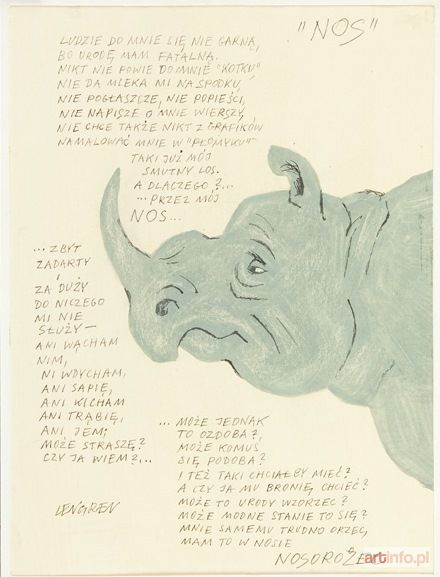 "NOS"
LUDZIE DO MNIE SIĘ NIE GARNĄ,
BO URODĘ MAM FATALNĄ.
NIKT NIE POWIE DO MNIE "KOTKU"
NIE DA MLEKA MI NA SPODKU,
NIE POGŁASZCZE, NIE POPIEŚCI,
NIE NAPISZE O MNIE WIERSZY,
NIE CHCE TAKŻE NIKT Z GRAFIKÓW
NAMALOWAĆ MNIE W "PŁOMYKU"
TAKI JUŻ MÓJ
SMUTNY LOS.
A DLACZEGO?...
...PRZEZ MÓJ
NOS...
...ZBYT
ZADARTY
I
ZA DUŻY
DO NICZEGO
MI NIE
SŁUŻY—
ANI WĄCHAM
NIM,
NI WDYCHAM,
ANI SAPIĘ,
ANI KICHAM
ANI TRĄBIĘ,
ANI JEM;
MOŻE STRASZĘ?
CZY JA WIEM?...
...MOŻE JEDNAK
TO OZDOBA?,
MOŻE KOMUŚ
SIĘ PODOBA?
I TEŻ TAKI CHCIAŁBY MIEĆ?
A CZY JA MU BRONIĘ CHCIEĆ?
MOŻE TO URODY WZORZEC?
MOŻE MODNE STANIE TO SIĘ?
MNIE SAMEMU TRUDNO ORZEC,
MAM TO W NOSIE
NOSOROŻEC
LENGREN
artinfo.pl